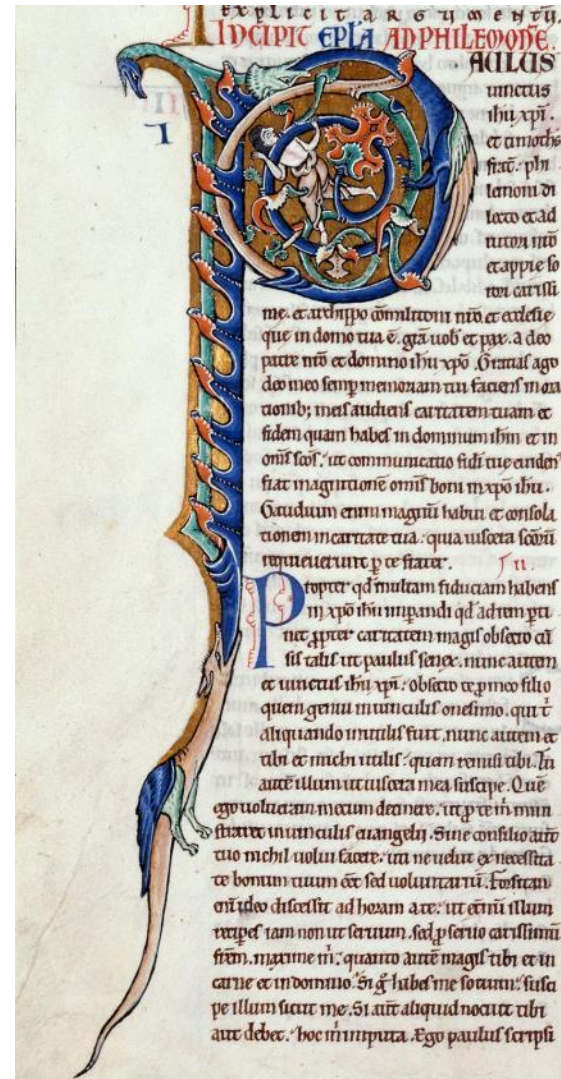 EXPLICIT ARGUMENTŪ
INCIPIT EPLA AD PHILEMONĒ.
PAULUS
uinctus
ihu xpi.
et timoths
frat̄. phi
lemoni di
lecto et ad
iutori nr̄o
et appie so
rori carissi
me. et archippo cōmilitoni nr̄o. et ecclesie
que in domo tua ē. grā uob et pax. a deo
patre nr̄o et domino ihu xpo. Gratias ago
deo meo semp memoriam tui faciens in ora
tionib; meis audiens caritatem tuam et
fidem quam habes in dominum ihm et in
omīs scos. ut communicatio fidi tue euidens
fiat in agnitione omīs boni in xpo ihu.
Gaudium enim magnū habui et consola
tionem in caritate tua. quia uiscera scōrū
requieuerunt p te frater. II.
Propter qd multam fiduciam habens
in xpo ihu imperandi qd ad rem pti
net. ppter caritatem magis obsecro cū
sis talis ut paulus senex. nunc autem
et uinctus ihu xpi. obsecro te p meo filio
quem genui in uinculis onesimo. qui t
aliquando inutilis fuit. nunc autem et
tibi et michi utilis. quem remisi tibi. Tu
autē illum ut uiscera mea suscipe. Quē
ego uolueram mecum detinere. ut p te m mini
straret in uinculis euangelii. Sine consilio aut̄
tuo nichil uolui facere. uti ne uelut ex necessita
te bonum tuum eēt sed uoluntariū. Forsitan
eni ideo discessit ad horam a te. ut et̄nū illum
recipes iam non ut seruum. sed p seruo carissimū
frem. maxime m. quanto autē magis tibi et in
carne et in domino. Si g habes me sotium. susci
pe illum sicut me. Si aut̄ aliquid nocuit tibi
aut debet. hoc m imputa. Ego paulus scripsi